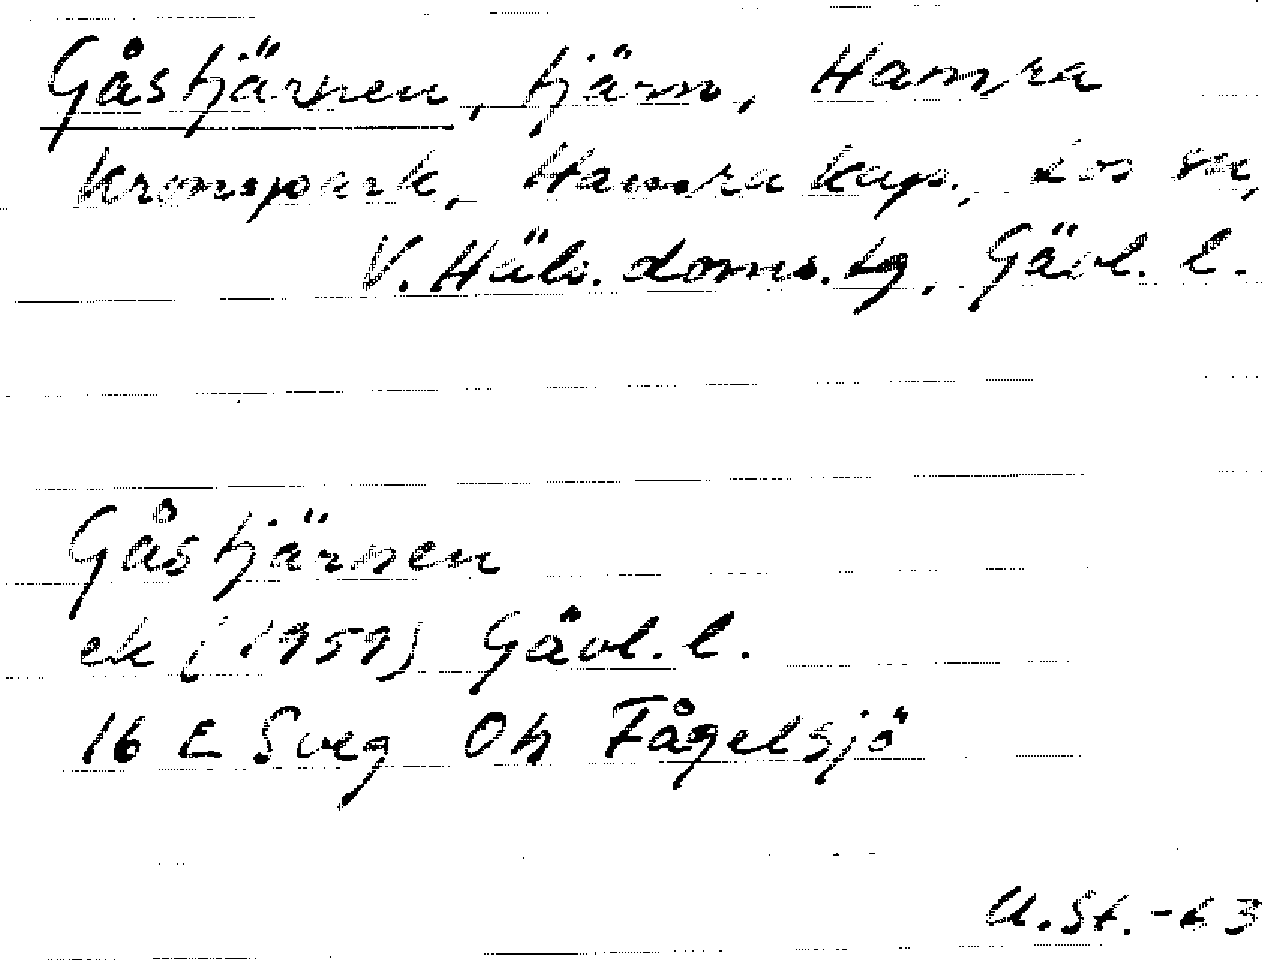 Gåstjärnen, tjärn, Hamra
kronopark, Hamra kap., Los sn,
V. Häls. doms. tg, Gävl. l.
Gåstjärnen
ek (1959) Gävl. l.
16 E Sveg Oh Fågelsjö
U.St. -63